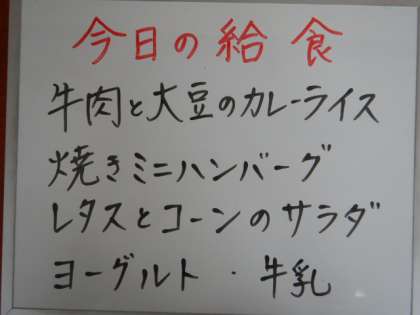 今日の給食
牛肉と大豆のカレーライス
焼きミニハンバーグ
レタスとコーンのサラダ
ヨーグルト・牛乳